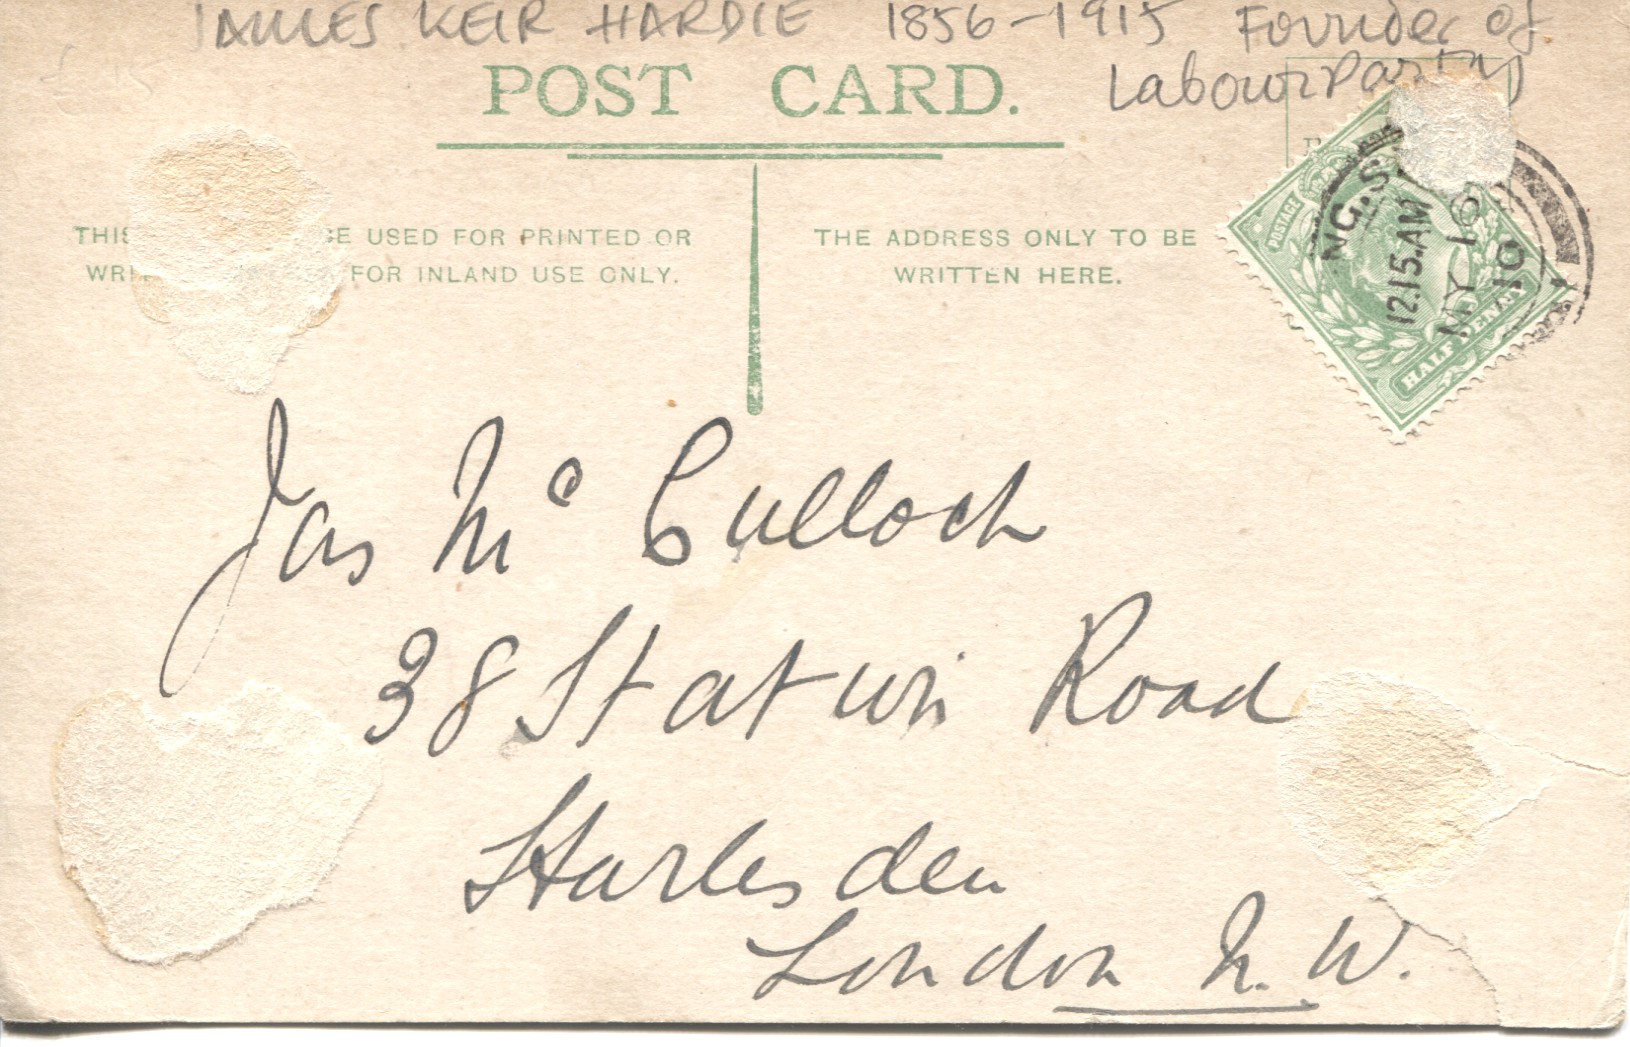 JAMES KEIR HARDIE 1856-1915 Founder of
Labour Party
POST CARD.
THIS BE USED FOR PRINTED OR
FOR INLAND USE ONLY.
THE ADDRESS ONLY TO BE
WRITTEN HERE.
POSTAGE
HALF PENNY
NG. S.
12.15.AM
MY 16
10
Jas Mc Culloch
38 Road
Harlesden
London N.W.